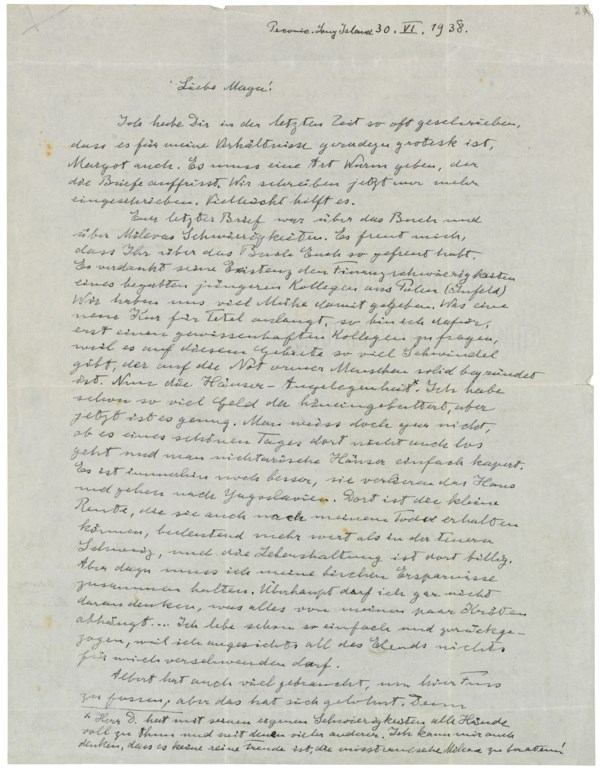 Peconic. Long Island 30. VI. 1938.
Liebe Maja!
Ich habe Dir in der letzten Zeit so oft geschrieben,
dass es für meine Verhältnisse geradezu grotesk ist,
Margot auch. Es muss eine Art Wurm geben, der
die Briefe auffrisst. Wir schreiben jetzt nur mehr
eingeschrieben. Vielleicht hilft es.
Euer letzter Brief war über das Buch und
über Milevas Schwierigkeiten. Es freut mich,
dass Ihr über das Buch Euch so gefreut habt.
Es verdankt seine Existenz den Finanzschwierigkeiten
eines begabten jüngeren Kollegen aus Polen (Infeld)
Wir haben uns viel Mühe damit gegeben. Was eine
neue Kur für Tetel anlangt, so bin ich dafür,
erst einen gewissenhaften Kollegen zu fragen,
weil es auf diesem Gebiete so viel Schwindel
gibt, der auf die Not armer Menschen solid begründet
ist. Nun die Häuser-Angelegenheit*. Ich habe
schon so viel Geld da hineingebuttert, aber
jetzt ist es genug. Man weiss doch gar nicht,
ob es eines schönen Tages dort nicht auch los
geht und man nichtarische Häuser einfach kapert.
Es ist immerhin noch besser, sie verlieren das Haus
und gehen nach Yugoslavien. Dort ist die kleine
Rente, die sie auch nach meinem Tode erhalten
können, bedeutend mehr wert als in der teuren
Schweiz, und die Lebenshaltung ist dort billig.
Aber dazu muss ich meine bischen Ersparnisse
zusammen halten. Überhaupt darf ich gar nicht
daran denken, was alles von meinen paar Kröten
abhängt.... Ich lebe schon so einfach und zurückge-
zogen, weil ich angesichts all des Elends nichts
für mich verschwenden darf.
Albert hat auch viel gebraucht, um hier Fuss
zu fassen, aber das hat sich gelohnt. Denn
* Herr D. hat mit seinen eigenen Schwierigkeiten alle Hände
voll zu thun und mit denen vieler anderer. Ich kann mir auch
denken, dass es keine reine Freude ist, die misstrauische Mileva zu beraten!